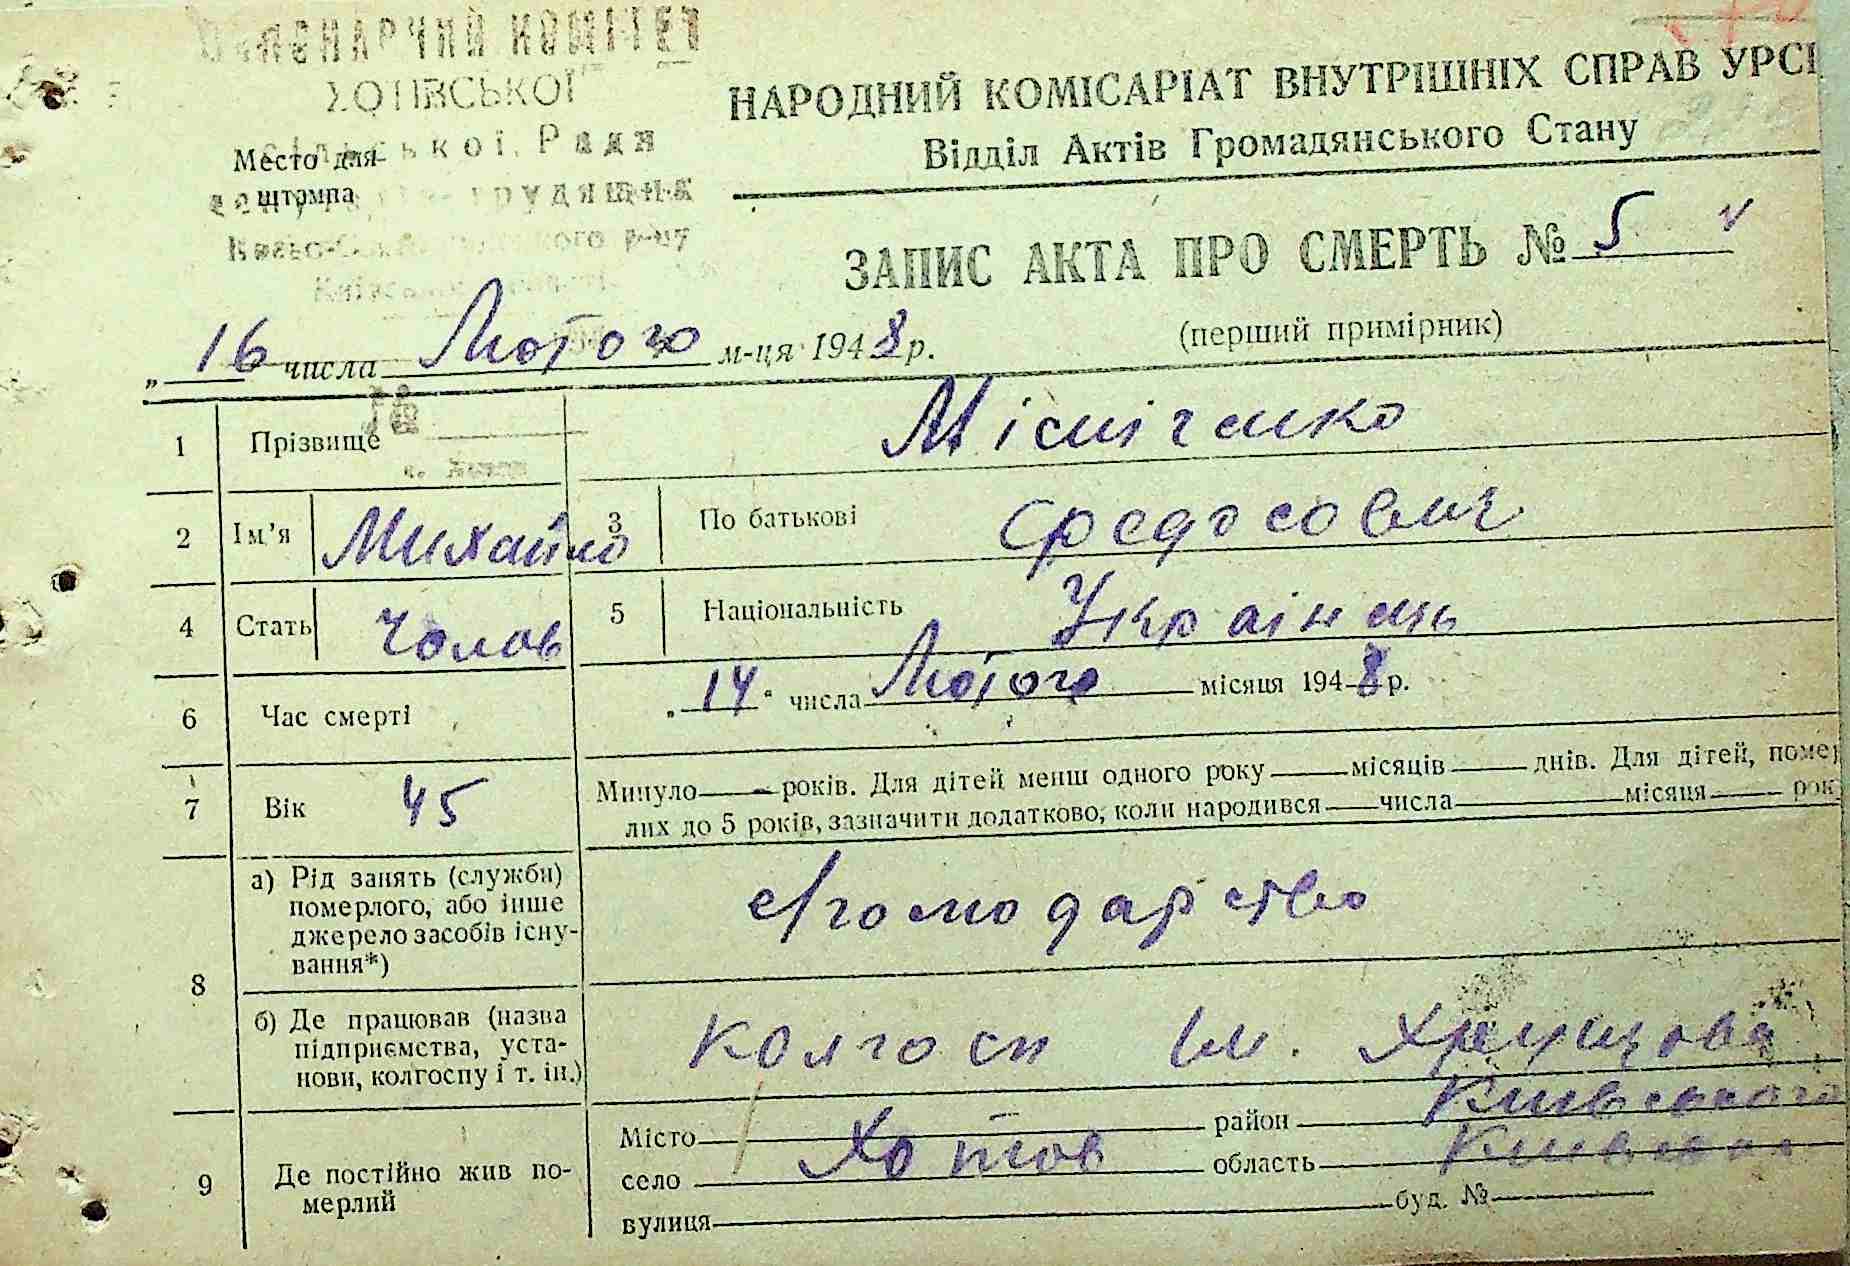 ХОТІВСЬКОЇ
НАРОДНИЙ КОМІСАРІАТ ВНУТРІШНІХ СПРАВ УРСР
Відділ Актів Громадянського Стану
Место для
штампа
Ради
ЗАПИС АКТА ПРО СМЕРТЬ № 5
(перший примірник)
„ 16 числа Лютого м-ця 1948 р.
1 Прізвище
2 Ім'я Михайло 3 По батькові Федосович
4 Стать Чолов 5 Національність Українець
6 Час смерті „ 14 " числа Лютого місяця 1948 р.
7 Вік 45 Минуло — років. Для дітей менш одного року — місяців — днів. Для дітей, помер-
лих до 5 років, зазначити додатково, коли народився — числа — місяця — рок
8 а) Рід занять (служби)
померлого, або інше
джерело засобів існу-
вання*)
б) Де працював (назва
підприємства, уста-
нови, колгоспу і т. ін.)
колгосп ім. Хрущова
9 Де постійно жив по-
мерлий
Місто район Київського
село Хотов область
вулиця буд. №